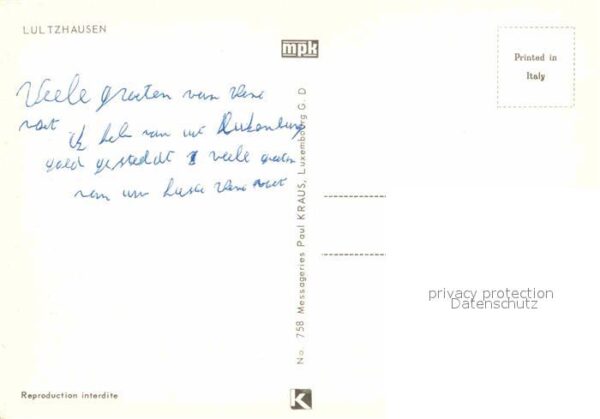 LULTZHAUSEN
mpk
Printed in
Italy
Veele groeten van
ik heb van uit Luxenburg
goed veele groeten
van
No. 758 Messageries Paul KRAUS, Luxembourg G. D
privacy protection
Datenschutz
Reproduction interdite
K